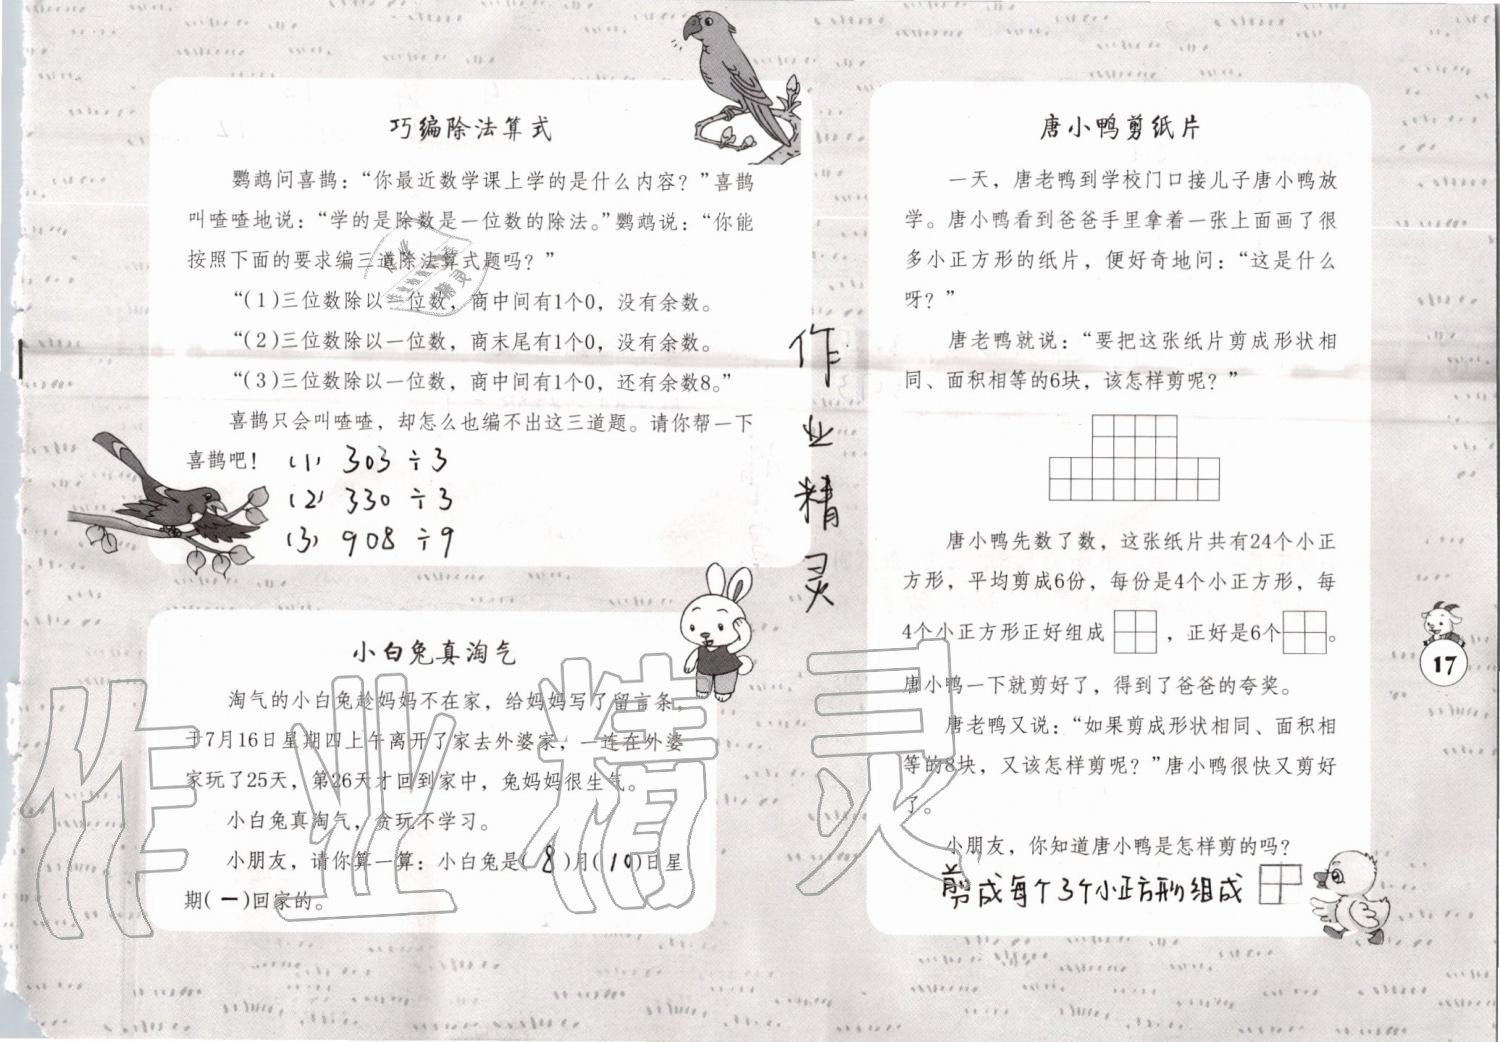 巧编除法算式
鹦鹉问喜鹊：“你最近数学课上学的是什么内容？”喜鹊
叫喳喳地说：“学的是除数是一位数的除法。”鹦鹉说：“你能
按照下面的要求编三道除法算式题吗？”
“(1)三位数除以一位数，商中间有1个0，没有余数。
“(2)三位数除以一位数，商末尾有1个0，没有余数。
“(3)三位数除以一位数，商中间有1个0，还有余数8。”
喜鹊只会叫喳喳，却怎么也编不出这三道题。请你帮一下
喜鹊吧！ (1) 303÷3
(2) 330÷3
(3) 908÷9
小白兔真淘气
淘气的小白兔趁妈妈不在家，给妈妈写了留言条，
于7月16日星期四上午离开了家去外婆家，一连在外婆
家玩了25天，第26天才回到家中，兔妈妈很生气。
小白兔真淘气，贪玩不学习。
小朋友，请你算一算：小白兔是(8)月(10)日星
期(一)回家的。
作业精灵
唐小鸭剪纸片
一天，唐老鸭到学校门口接儿子唐小鸭放
学。唐小鸭看到爸爸手里拿着一张上面画了很
多小正方形的纸片，便好奇地问：“这是什么
呀？”
唐老鸭就说：“要把这张纸片剪成形状相
同、面积相等的6块，该怎样剪呢？”
唐小鸭先数了数，这张纸片共有24个小正
方形，平均剪成6份，每份是4个小正方形，每
4个小正方形正好组成，正好是6个。
唐小鸭一下就剪好了，得到了爸爸的夸奖。
唐老鸭又说：“如果剪成形状相同、面积相
等的8块，又该怎样剪呢？”唐小鸭很快又剪好
了。
小朋友，你知道唐小鸭是怎样剪的吗？
剪成每个3个小正方形组成
17
作业精灵